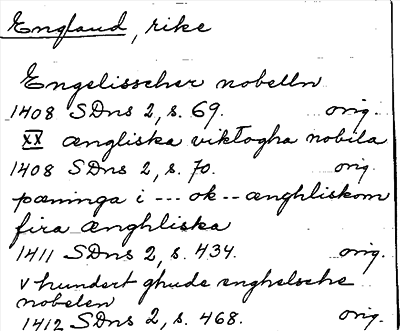 England, rike
Engelisscher nobelln
1408 SDns 2, s. 69. orig.
xx ængliska viktogha nobila
1408 SDns 2, s. 70. orig.
pæninga i --- ok -- ænghliskom
fira ænghliska
1411 SDns 2, s. 434. orig.
v hundert ghude enghelsche
nobelen
1412 SDns 2, s. 468. orig.